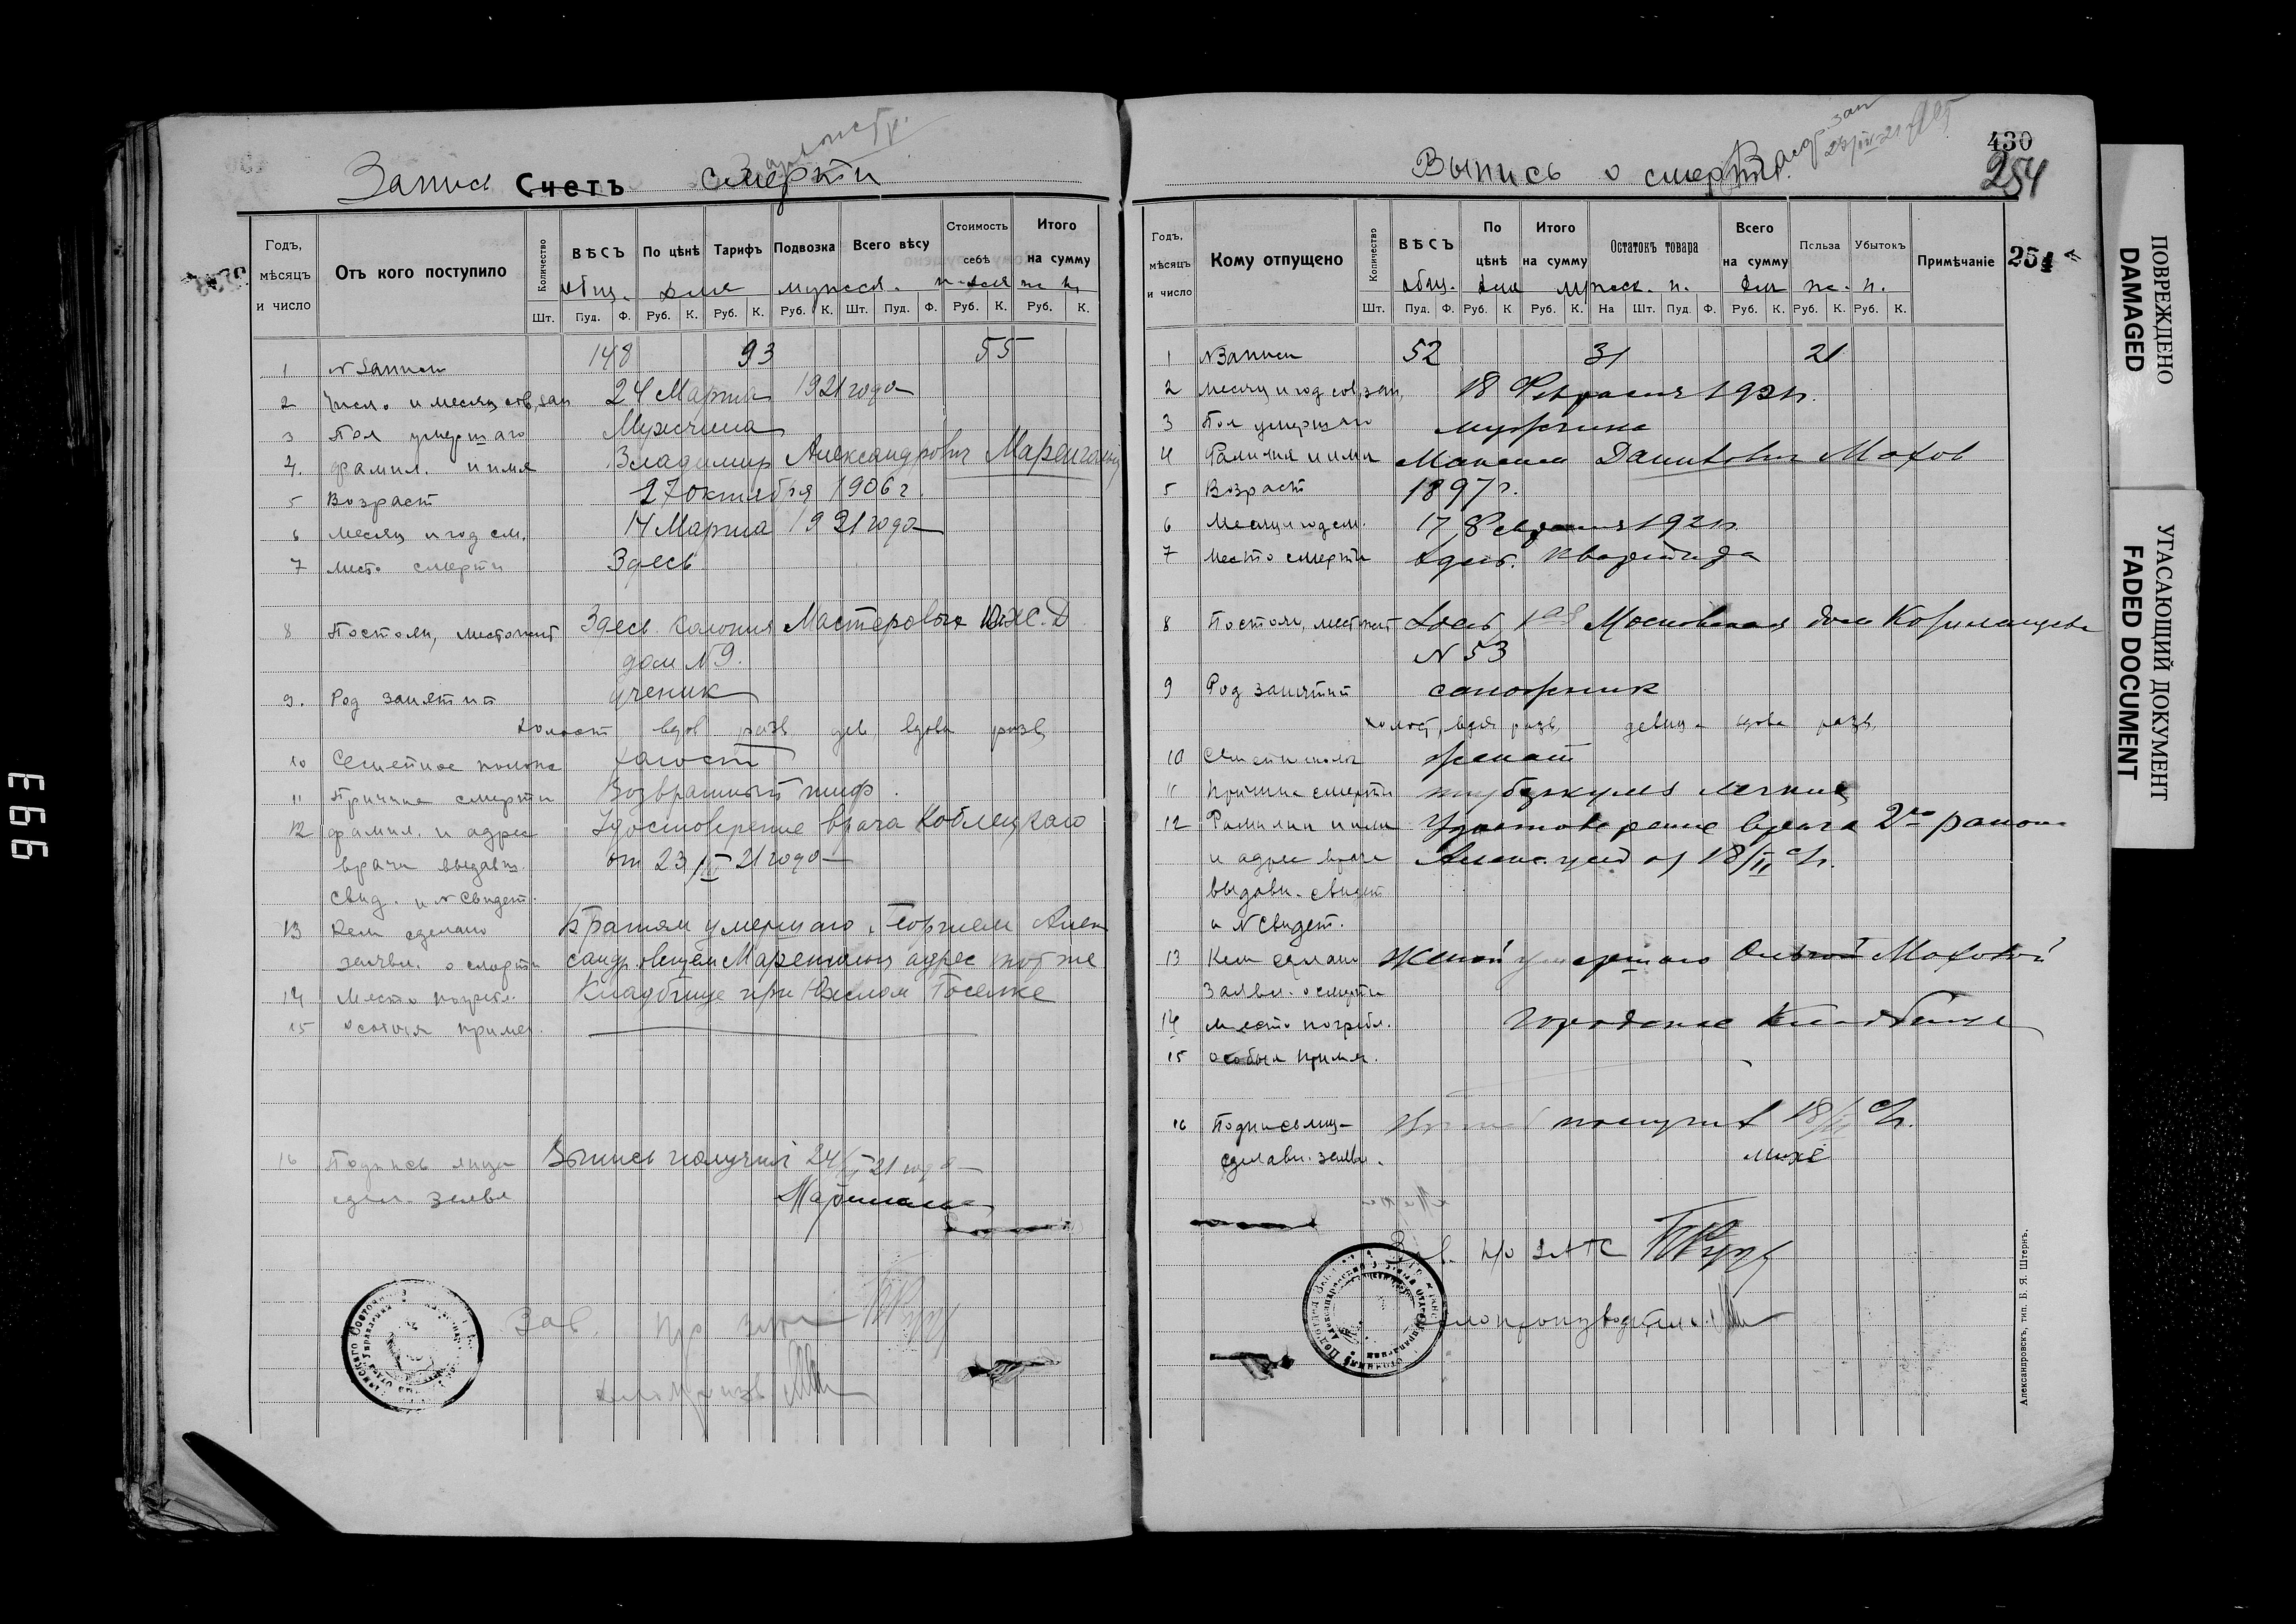 Запись Счетъ смерти
Годъ, мѣсяцъ и число
Отъ кого поступило
Количество
ВѢСЪ
По цѣнѣ
Тарифъ
Подвозка
Всего вѣсу
Стоимость себѣ
Итого на сумму
общ. для мужск.
Шт. Пуд. Ф. Руб. К. Руб. К. Руб. К. Шт. Пуд. Ф. Руб. К. Руб. К.
1 N Записи 148 93 55
2 Число и месяц сов, зап 24 Марта 1921 года
3 Пол умершаго Мужчина
4. фамил. и имя Владимир Александрович
5 Возраст 27 октября 1906 г.
6 месяц и год см. 14 Марта 1921 года
7 место смерти Здесь
8 Постоян, местожит Здесь колония Мастеровых
дом N 9.
9. Род занятий ученик
холост вдов разв дев вдова разв
10 Семейное полож холост
11 Причина смерти Возвратный тиф.
12 фамил. и адрес Удостоверение врача Коблецкаго
врача выдавш. от 23/III 21 года
свид. и N свидет.
13 Кем сделано Братом умершаго, Георгием Алек
заявл. о смерти сандровичем адрес тот же
14 Место погребл. Кладбище при Южном Поселке
15 особыя примеч.
16 Подпись лица Выпись получил 24/III 21 года
сдел. заявл
Зав.
430
254
Выпись о смерти
Годъ, мѣсяцъ и число
Кому отпущено
Количество
ВѢСЪ
По цѣнѣ
Итого на сумму
Остатокъ товара
Всего на сумму
Польза
Убытокъ
Примѣчаніе
251
общ. для мужск. п. для ж. п.
Шт. Пуд. Ф. Руб. К Руб. К. На Шт. Пуд. Ф. Руб. К. Руб. К. Руб. К.
1 N Записи 52 31 21
2 месяц и год сов, зап, 18 Февраля 1921 г.
3 Пол умершаго мужчина
4 Фамилия и имя Максим Данилович Махов
5 Возраст 1897 г.
6 Месяц и год см. 17 Февраля 1921 г.
7 Место смерти здесь. квартира
8 Постоян, местожит Здесь, Московская дом
N 53
9 Род занятий сапожник
холост, вдов разв, девица вдова разв,
10 Семейн полож женат
11 Причина смерти туберкулез легких
12 Фамилия и имя Удостоверение врача 2го района
и адрес врача от 18/II с/г.
выдавш. свидет
и N свидет.
13 Кем сделано Женой умершаго Ольгой Маховой
Заявл. о смерти
14 Место погребл. Городское Кладбище
15 особыя примеч.
16 Подпись лица получил 18/II с/г.
сделавш. заявл.
Зав. п/о ЗАГС
Делопроизводитель
Александровскъ, тип. Б. Я. Штернъ.
ПОВРЕЖДЕНО
DAMAGED
УГАСАЮЩИЙ ДОКУМЕНТ
FADED DOCUMENT
993